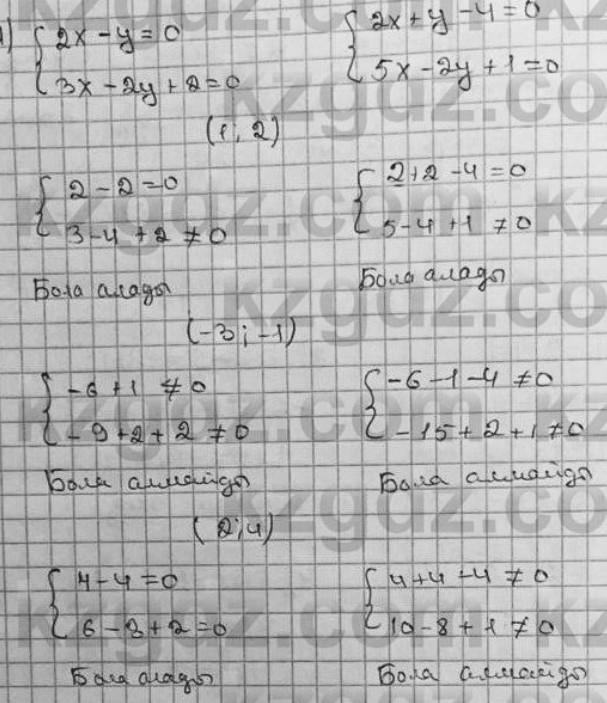 1) { 2x - y = 0 { 2x + y - 4 = 0
{ 3x - 2y + 2 = 0 { 5x - 2y + 1 = 0
(1; 2)
{ 2 - 2 = 0 { 2 + 2 - 4 = 0
{ 3 - 4 + 2 ≠ 0 { 5 - 4 + 1 ≠ 0
Бола алады Бола алады
(-3; -1)
{ -6 + 1 ≠ 0 { -6 - 1 - 4 ≠ 0
{ -9 + 2 + 2 ≠ 0 { -15 + 2 + 1 ≠ 0
Бола алмайды Бола алмайды
(2; 4)
{ 4 - 4 = 0 { 4 + 4 - 4 ≠ 0
{ 6 - 8 + 2 = 0 { 10 - 8 + 1 ≠ 0
Бола алады Бола алмайды
kzgdz.com